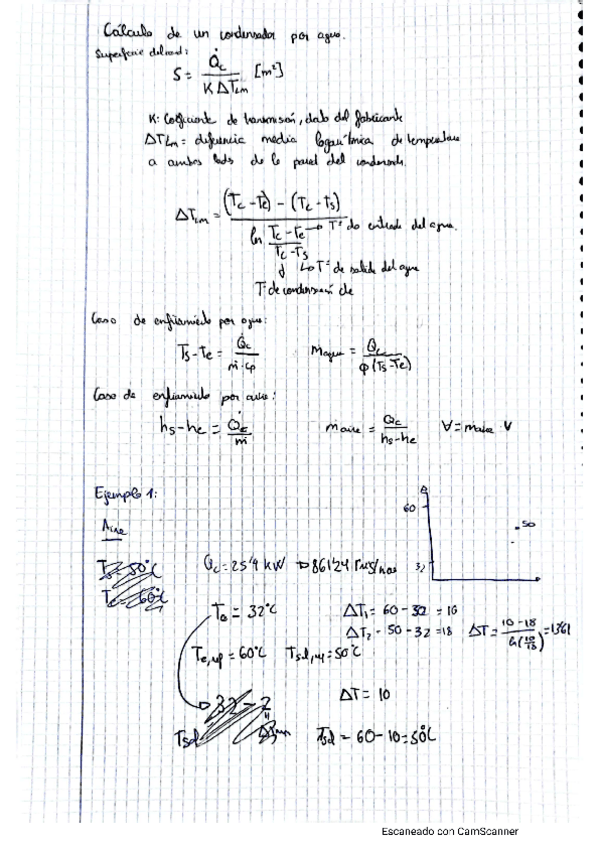 Cálculo de un condensador por agua.
Superficie del cond:
S = Q̇c / K ΔTLm [m²]
K: Coeficiente de transmisión, dato del fabricante
ΔTLm = diferencia media logarítmica de temperatura
a ambos lados de la pared del condensador.
ΔTLm = (Tc - Te) - (Tc - Ts) / ln Tc - Te / Tc - Ts
→ Tª de entrada del agua.
↳ Tª de salida del agua
Tª de condensación de
Caso de enfriamiento por agua:
Ts - te = Q̇c / ṁ · cp
Magua = Qc / cp (Ts - Te)
Caso de enfriamiento por aire:
hs - he = Q̇c / ṁ
maire = Qc / hs - he
V = maire · v
Ejemplo 1:
Aire
60
50
32
Qc = 25'4 kW → 86124
To = 32°C
ΔT1 = 60 - 32 = 10
ΔT2 - 50 - 32 = 18
ΔT = 10 - 18 / ln(10/18) = 13'61
60°C
= 50°C
ΔT = 10
32 - 2
Tsal = 60 - 10 = 50°C
Escaneado con CamScanner